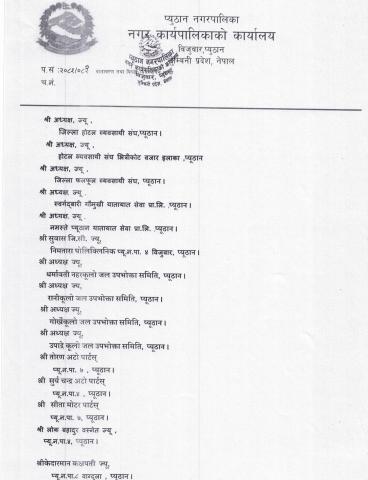 प्यूठान नगरपालिका
नगर कार्यपालिकाको कार्यालय
विजुवार,प्यूठान
लुम्बिनी प्रदेश, नेपाल
प.स :२०८१/०८२
च.नं.
श्री अध्यक्ष, ज्यू ,
जिल्ला होटल व्यवसायी संघ,प्यूठान।
श्री अध्यक्ष, ज्यू ,
होटल व्यवसायी संघ भित्रीकोट बजार इलाका ,प्यूठान
श्री अध्यक्ष, ज्यू ,
जिल्ला फलफूल व्यवसायी संघ, प्यूठान।
श्री अध्यक्ष, ज्यू .
स्वर्गद्वारी गौमुखी यातायात सेवा प्रा.लि. प्यूठान।
श्री अध्यक्ष, ज्यू .
नमस्ते प्यूठान यातायात सेवा प्रा.लि. प्यूठान।
श्री सुवास जि.सी. ज्यू,
पोलिक्लिनिक प्यू.न.पा. ४ विजुवार, प्यूठान।
श्री अध्यक्ष ज्यू,
धर्मावती नहरकूलो जल उपभोक्ता समिति, प्यूठान।
श्री अध्यक्ष ज्यू,
रानीकूलो जल उपभोक्ता समिति, प्यूठान।
श्री अध्यक्ष ज्यू,
गोर्खेकूलो जल उपभोक्ता समिति, प्यूठान।
श्री अध्यक्ष ज्यू,
उपाद्रे कूलो जल उपभोक्ता समिति, प्यूठान।
श्री तोरण अटो पार्टस्
प्यू.न.पा. ७ , प्यूठान।
श्री सुर्य चन्द्र अटो पार्टस्
प्यू.न.पा.४ , प्यूठान।
श्री सीता मोटर पार्टस्
प्यू.न.पा. ७, प्यूठान।
श्री लोक बहादुर वस्नेत ज्यू ,
प्यू.न.पा.४, प्यूठान।
श्रीकेदारमान कक्षपती ज्यू,
प्यू.न.पा.८ वाग्दुला , प्यूठान।